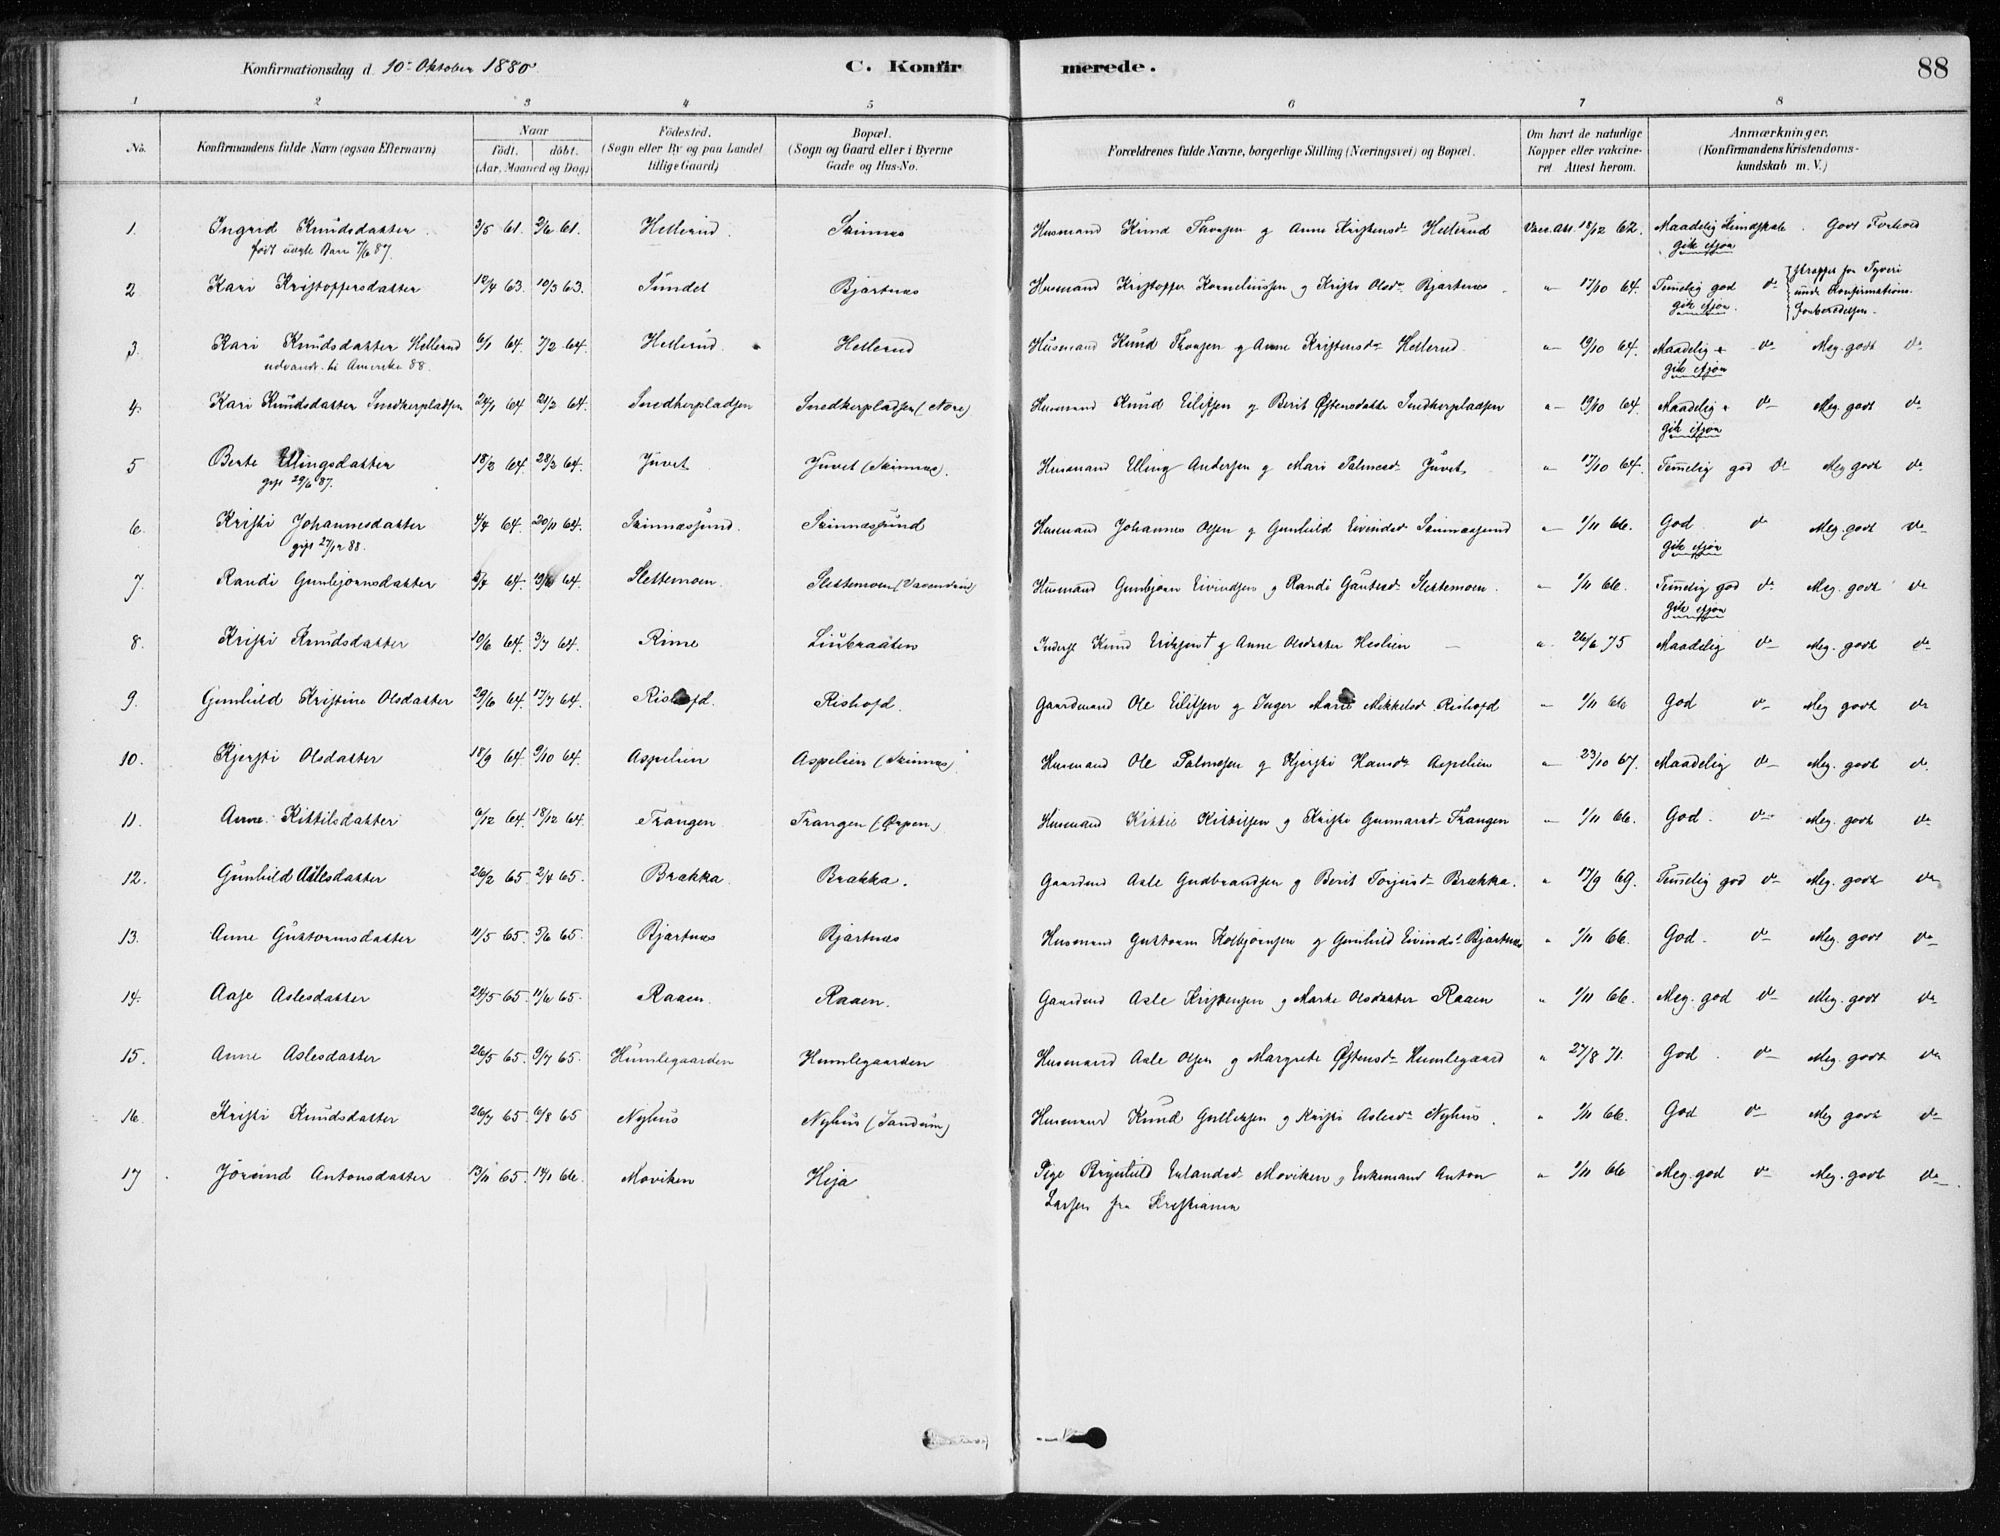 Konfirmationsdag d. 10de Oktober 1880.
C. Konfirmerede.
88
1 2 3 4 5 6 7 8
No. Konfirmandens fulde Navn (ogsaa Efternavn) Naar födt. döbt. (Aar, Maaned og Dag) Födested. (Sogn eller By og paa Landet tillige Gaard) Bopæl. (Sogn og Gaard eller i Byerne Gade og Hus-No. Forældrenes fulde Navne, borgerlige Stilling (Næringsvei) og Bopæl. Om havt de naturlige Kopper eller vakcineret. Attest herom. Anmærkninger. (Konfirmandens Kristendomskundskab m. V.)
1. Ingrid Knudsdatter. 3/5 61. 2/6 61. Hellerud Skinnes Husmand Knud Thorsen og Anne Kristensdr Hellerud Vacc. Att. 18/12 62. Maadelig Kundskab. Godt Forhold
født uægte Barn 7/6 87. gik ifjor
2 Kari Kristoffersdatter 12/4 63. 10/3 63. Sundet Bjørtnes Husmand Kristoffer Korneliussen og Kristi Olsdr Bjørtnes. " 17/10 64. Temelig god do straffet for Tyveri
gik ifjor. under Konfirmations-
forberedelsen.
3. Kari Knudsdatter Hellerud 6/1 64. 7/2 64. Hellerud. Hellerud Husmand Knud Thorsen og Anne Kristensdr Hellerud. " 19/10 64. Maadelig do Meg. godt do
udvandr. til Amerika 88. gik ifjor
4. Kari Knudsdatter Snedkerpladsen 24/1 64 21/2 64. Snedkerpladsen Snedkerpladsen (Nore) Husmand Knud Eilifsen og Berit Østensdatter Snedkerpladsen " 19/10 64. Maadelig do Meg. godt do
gik ifjor
5 Berte Ellingsdatter 18/2 64. 28/3 64. Juvet Juvet (Skinnes). Husmand Elling Andersen og Mari Palmesdr Juvet. " 17/10 64. Temelig god do Meg godt do
gift 29/6 87.
6. Kristi Johannesdatter 4/4 64. 20/11 64. Skinnessund. Skinnessund Husmand Johannes Olsen og Gunhild Eivindsdr Skinnessund " 1/11 66. God do Meg. godt do
gift 27/12 88. gik ifjor
7. Randi Gunbjørnsdatter 64. 64. Slettemoen. Slettemoen Husmand Gunbjørn Eivindsen og Randi Gautesdr Slettemoen. " 1/11 66. Temelig god do Meg. godt do
gik ifjor
8. Kristi Knudsdatter 10/6 64. 3/7 64. Rime Liubraaten Inderst Knud Eriksen † og Anne Olsdatter Heslien " 26/6 75 Maadelig do Meg. godt do
9. Gunhild Kristine Olsdatter 29/6 64. 17/7 64. Rishofd. Rishofd. Gaardmand Ole Eilifsen og Inger Marie Mikkelsdr Rishofd " 1/11 66 God do Meg godt do
10. Kjersti Olsdatter 18/9 64. 9/10 64. Aspelien Aspelien (Skinnes) Husmand Ole Palmesen og Kjersti Hansdr Aspelien " 23/10 67. Maadelig do Meg. godt do
11. Anne Kittilsdatter 6/12 64. 18/12 64. Trangen. Trangen (Ørpen) Husmand Kittil Kittilsen og Kristi Gunnarsdr Trangen " 1/11 66. God. do Meg. godt do
12. Gunhild Aslesdatter 26/2 65. 2/4 65. Brækka. Brækka. Gaardmd Asle Gudbrandsen og Berit Torjusdr Brækka. " 17/9 69. Temelig god do Meg. godt do
13. Anne Guttormsdatter 11/5 65. 5/6 65. Bjørtnes Bjørtnes Husmand Guttorm Kolbjørnsen og Gunhild Eivindsdr Bjørtnes " 1/11 66. God. do Meg. godt do
14. Aase Aslesdatter 24/5 65. 11/6 65. Raaen. Raaen. Gaardmd Asle Kristensen og Marte Olsdatter Raaen " 1/11 66. Meg. god do Meg. godt do
15. Anne Aslesdatter 26/5 65. 9/7 65. Humlegaarden Humlegaarden Husmand Asle Olsen og Margrete Østensdr Humlegaard " 27/8 71. God. do Meg. godt do
16. Kristi Knudsdatter 26/7 65. 6/8 65 Nyhus Nyhus (Sandum) Husmand Knud Gulliksen og Kristi Aslesdr Nyhus. " 1/11 66. God do Meg godt do
17 Jørand Antonsdatter 13/11 65. 14/1 66. Moviken Hija Pige Brynhild Erlandsdr Moviken og Enkemand Anton " 1/11 66 Meg. god do Meg. godt do
Larsen fra Kristiania